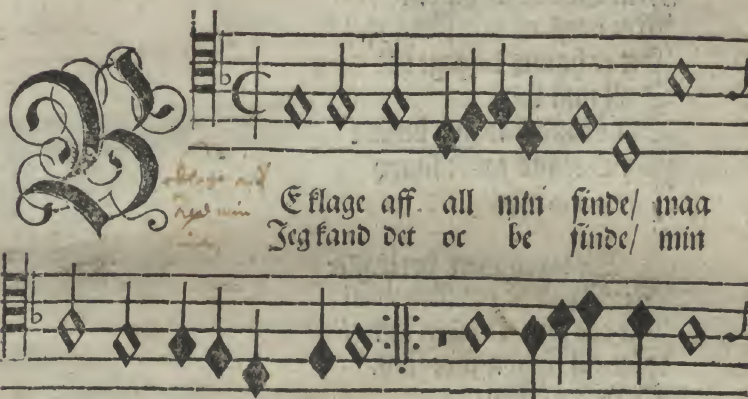 BE klage aff all min sinde/ maa
Jeg kand det oc be finde/ min